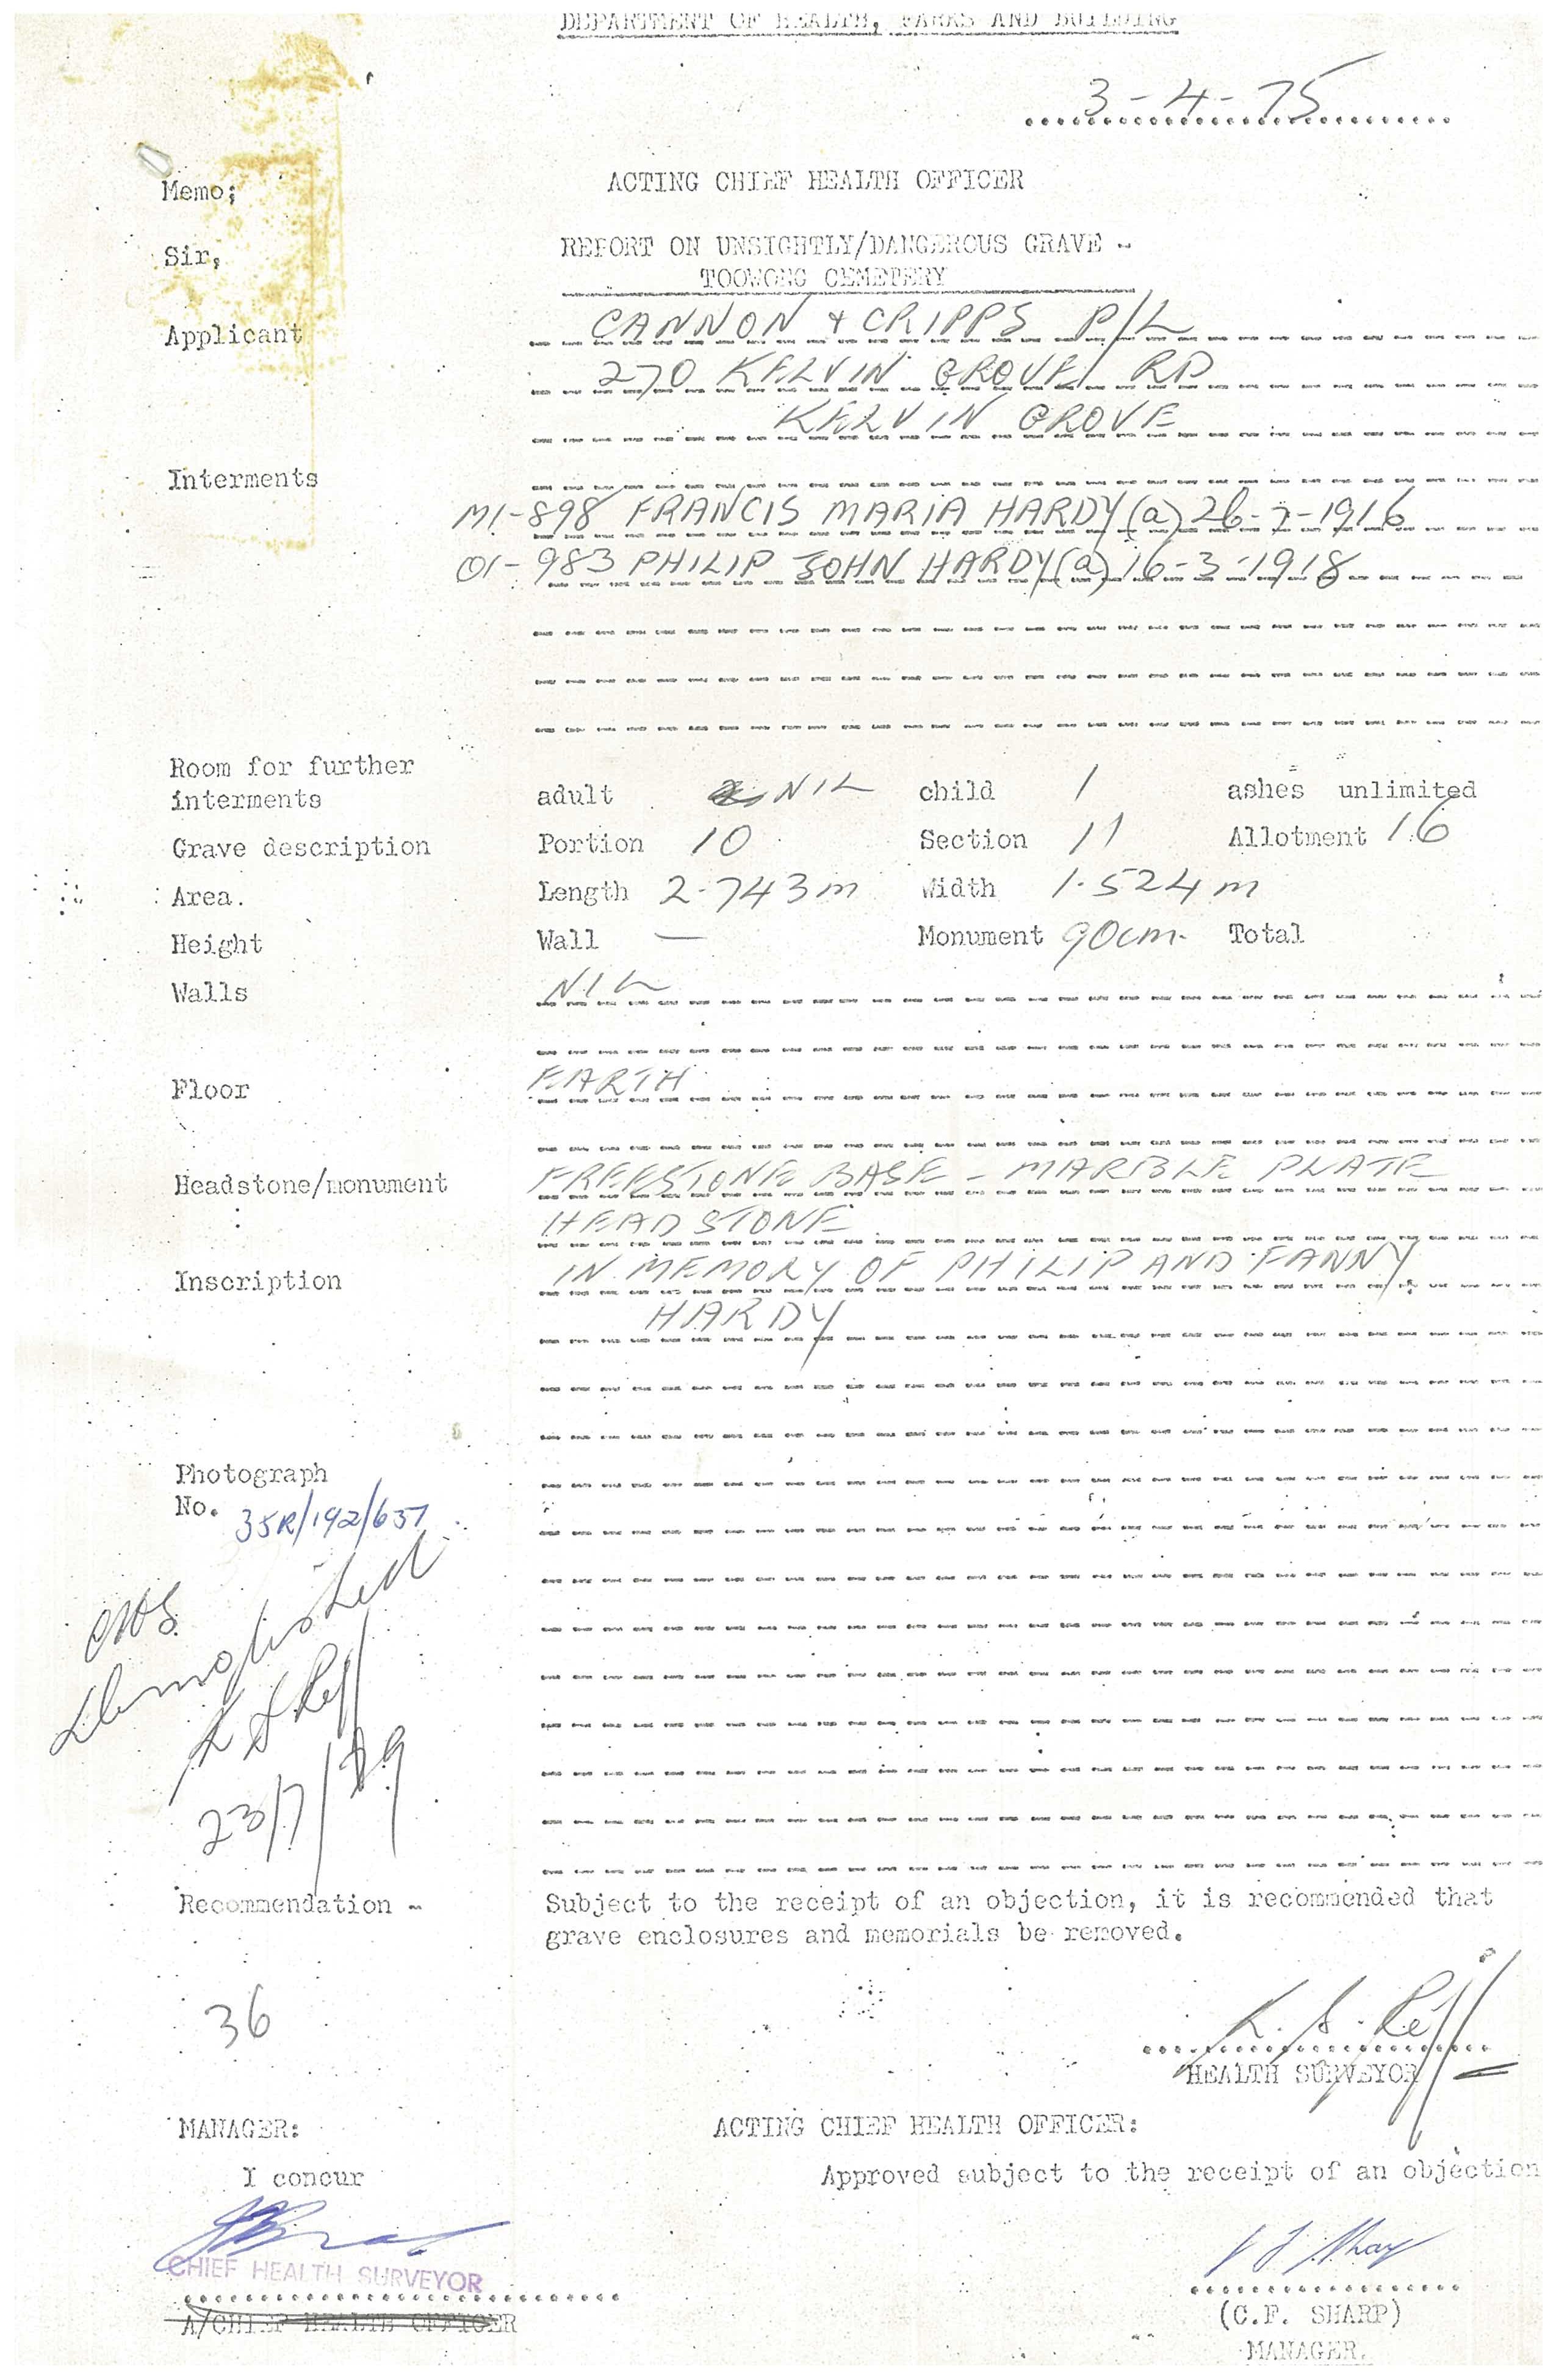 DEPARTMENT OF HEALTH, PARKS AND BUILDING
3-4-75
Memo; ACTING CHIEF HEALTH OFFICER
Sir, REPORT ON UNSIGHTLY/DANGEROUS GRAVE -
TOOWONG CEMETERY
Applicant CANNON + CRIPPS P/L
270 KELVIN GROVE RD
KELVIN GROVE
Interments
M1-898 FRANCIS MARIA HARDY (a) 26-7-1916
O1-983 PHILIP JOHN HARDY (a) 16-3-1918
Room for further
interments adult NIL child 1 ashes unlimited
Grave description Portion 10 Section 11 Allotment 16
Area. Length 2.743m Width 1.524m
Height Wall — Monument 90cm. Total
Walls NIL
Floor EARTH
Headstone/monument FREESTONE BASE - MARBLE PLATE
HEADSTONE
Inscription IN MEMORY OF PHILIP AND FANNY
HARDY
Photograph
No. 35R/192/637
Demolished
23/7/79
Recommendation - Subject to the receipt of an objection, it is recommended that
grave enclosures and memorials be removed.
36
HEALTH SURVEYOR
MANAGER: ACTING CHIEF HEALTH OFFICER:
I concur Approved subject to the receipt of an objection
CHIEF HEALTH SURVEYOR
A/CHIEF HEALTH OFFICER
(C.F. SHARP)
MANAGER.